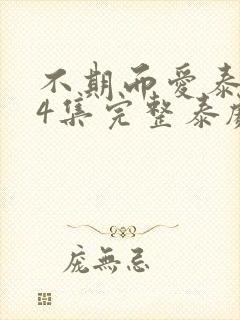 不期而愛泰
4集完整泰剧
庞無忌